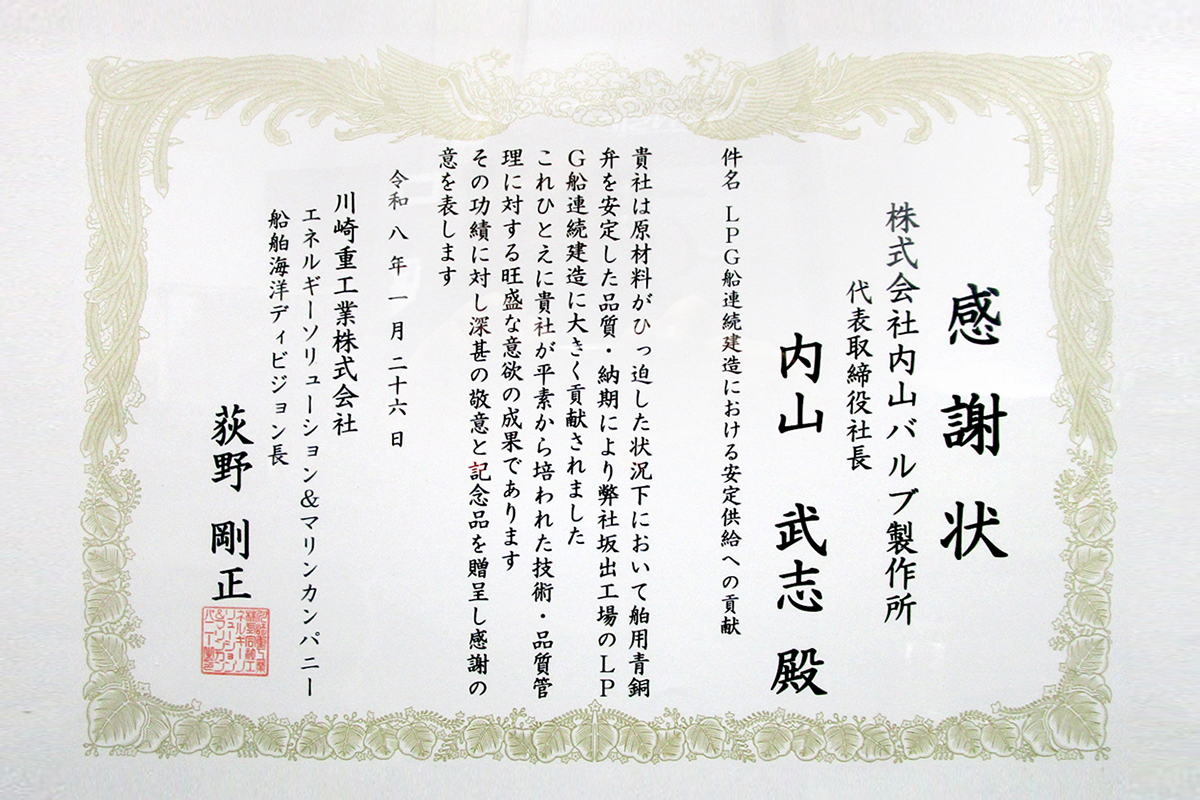 感謝状
株式会社内山バルブ製作所
代表取締役社長
内山 武志 殿
件名 LPG船連続建造における安定供給への貢献
貴社は原材料がひっ迫した状況下において舶用青銅
弁を安定した品質・納期により弊社坂出工場のLP
G船連続建造に大きく貢献されました
これひとえに貴社が平素から培われた技術・品質管
理に対する旺盛な意欲の成果であります
その功績に対し深甚の敬意と記念品を贈呈し感謝の
意を表します
令和八年一月二十六日
川崎重工業株式会社
エネルギーソリューション&マリンカンパニー
船舶海洋ディビジョン長
荻野 剛正